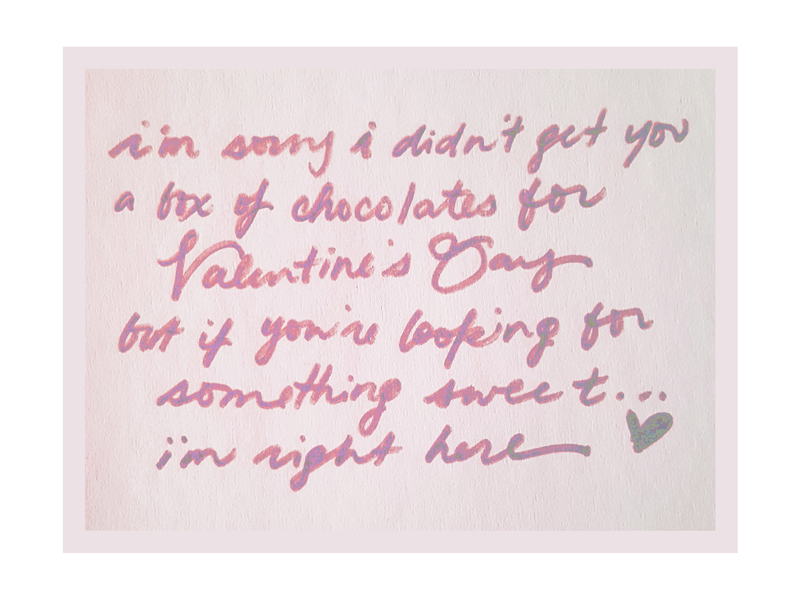 i'm sorry i didn't get you
a box of chocolates for
Valentine's Day
but if you're looking for
something sweet...
i'm right here